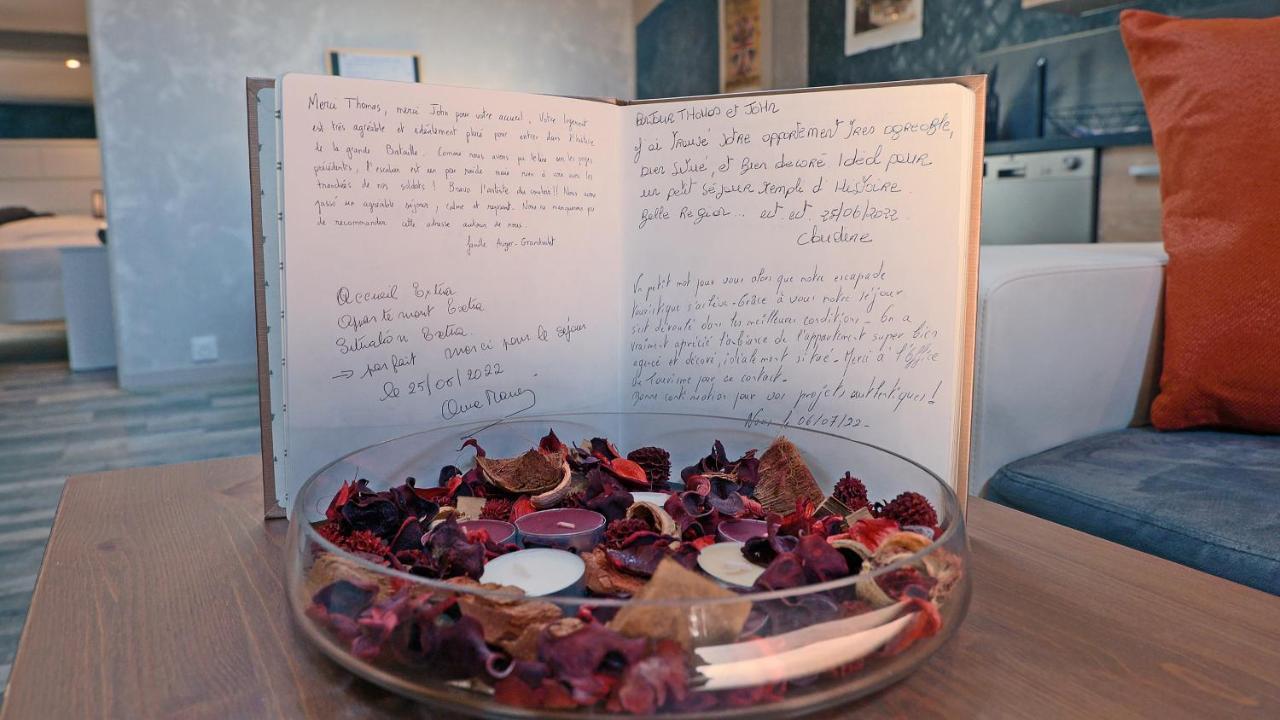 Merci Thomas, merci John pour votre accueil. Votre logement
est très agréable et idéalement placé pour entrer dans l'histoire
de la grande Bataille. Comme nous avons pu le lire sur les pages
précédentes, l'escalier est un peu raide mais rien à voir avec les
tranchées de nos soldats ! Bravo l'artiste du couloir !! Nous avons
passé un agréable séjour, calme et reposant. Nous ne manquerons pas
de recommander cette adresse autour de nous.
famille Auger-
Accueil Extra
Appartement Extra
Situation Extra
→ parfait merci pour le séjour
le 25/06/2022
BONJOUR THOMAS ET JOHN
J'ai trouvé votre appartement très agréable,
bien situé, et bien decoré. Idéal pour
un petit séjour remplie d'Histoire.
Belle Region... est est. 25/06/2022
Claudine
Un petit mot pour vous alors que notre escapade
touristique s'achève. Grâce à vous notre séjour
s'est déroulé dans les meilleures conditions. On a
vraiment apprécié l'ambiance de l'appartement super bien
agencé et décoré, idéalement situé. Merci à l'Office
de Tourisme pour ce contact.
Bonne continuation pour vos projets authentiques !
le 06/07/22.